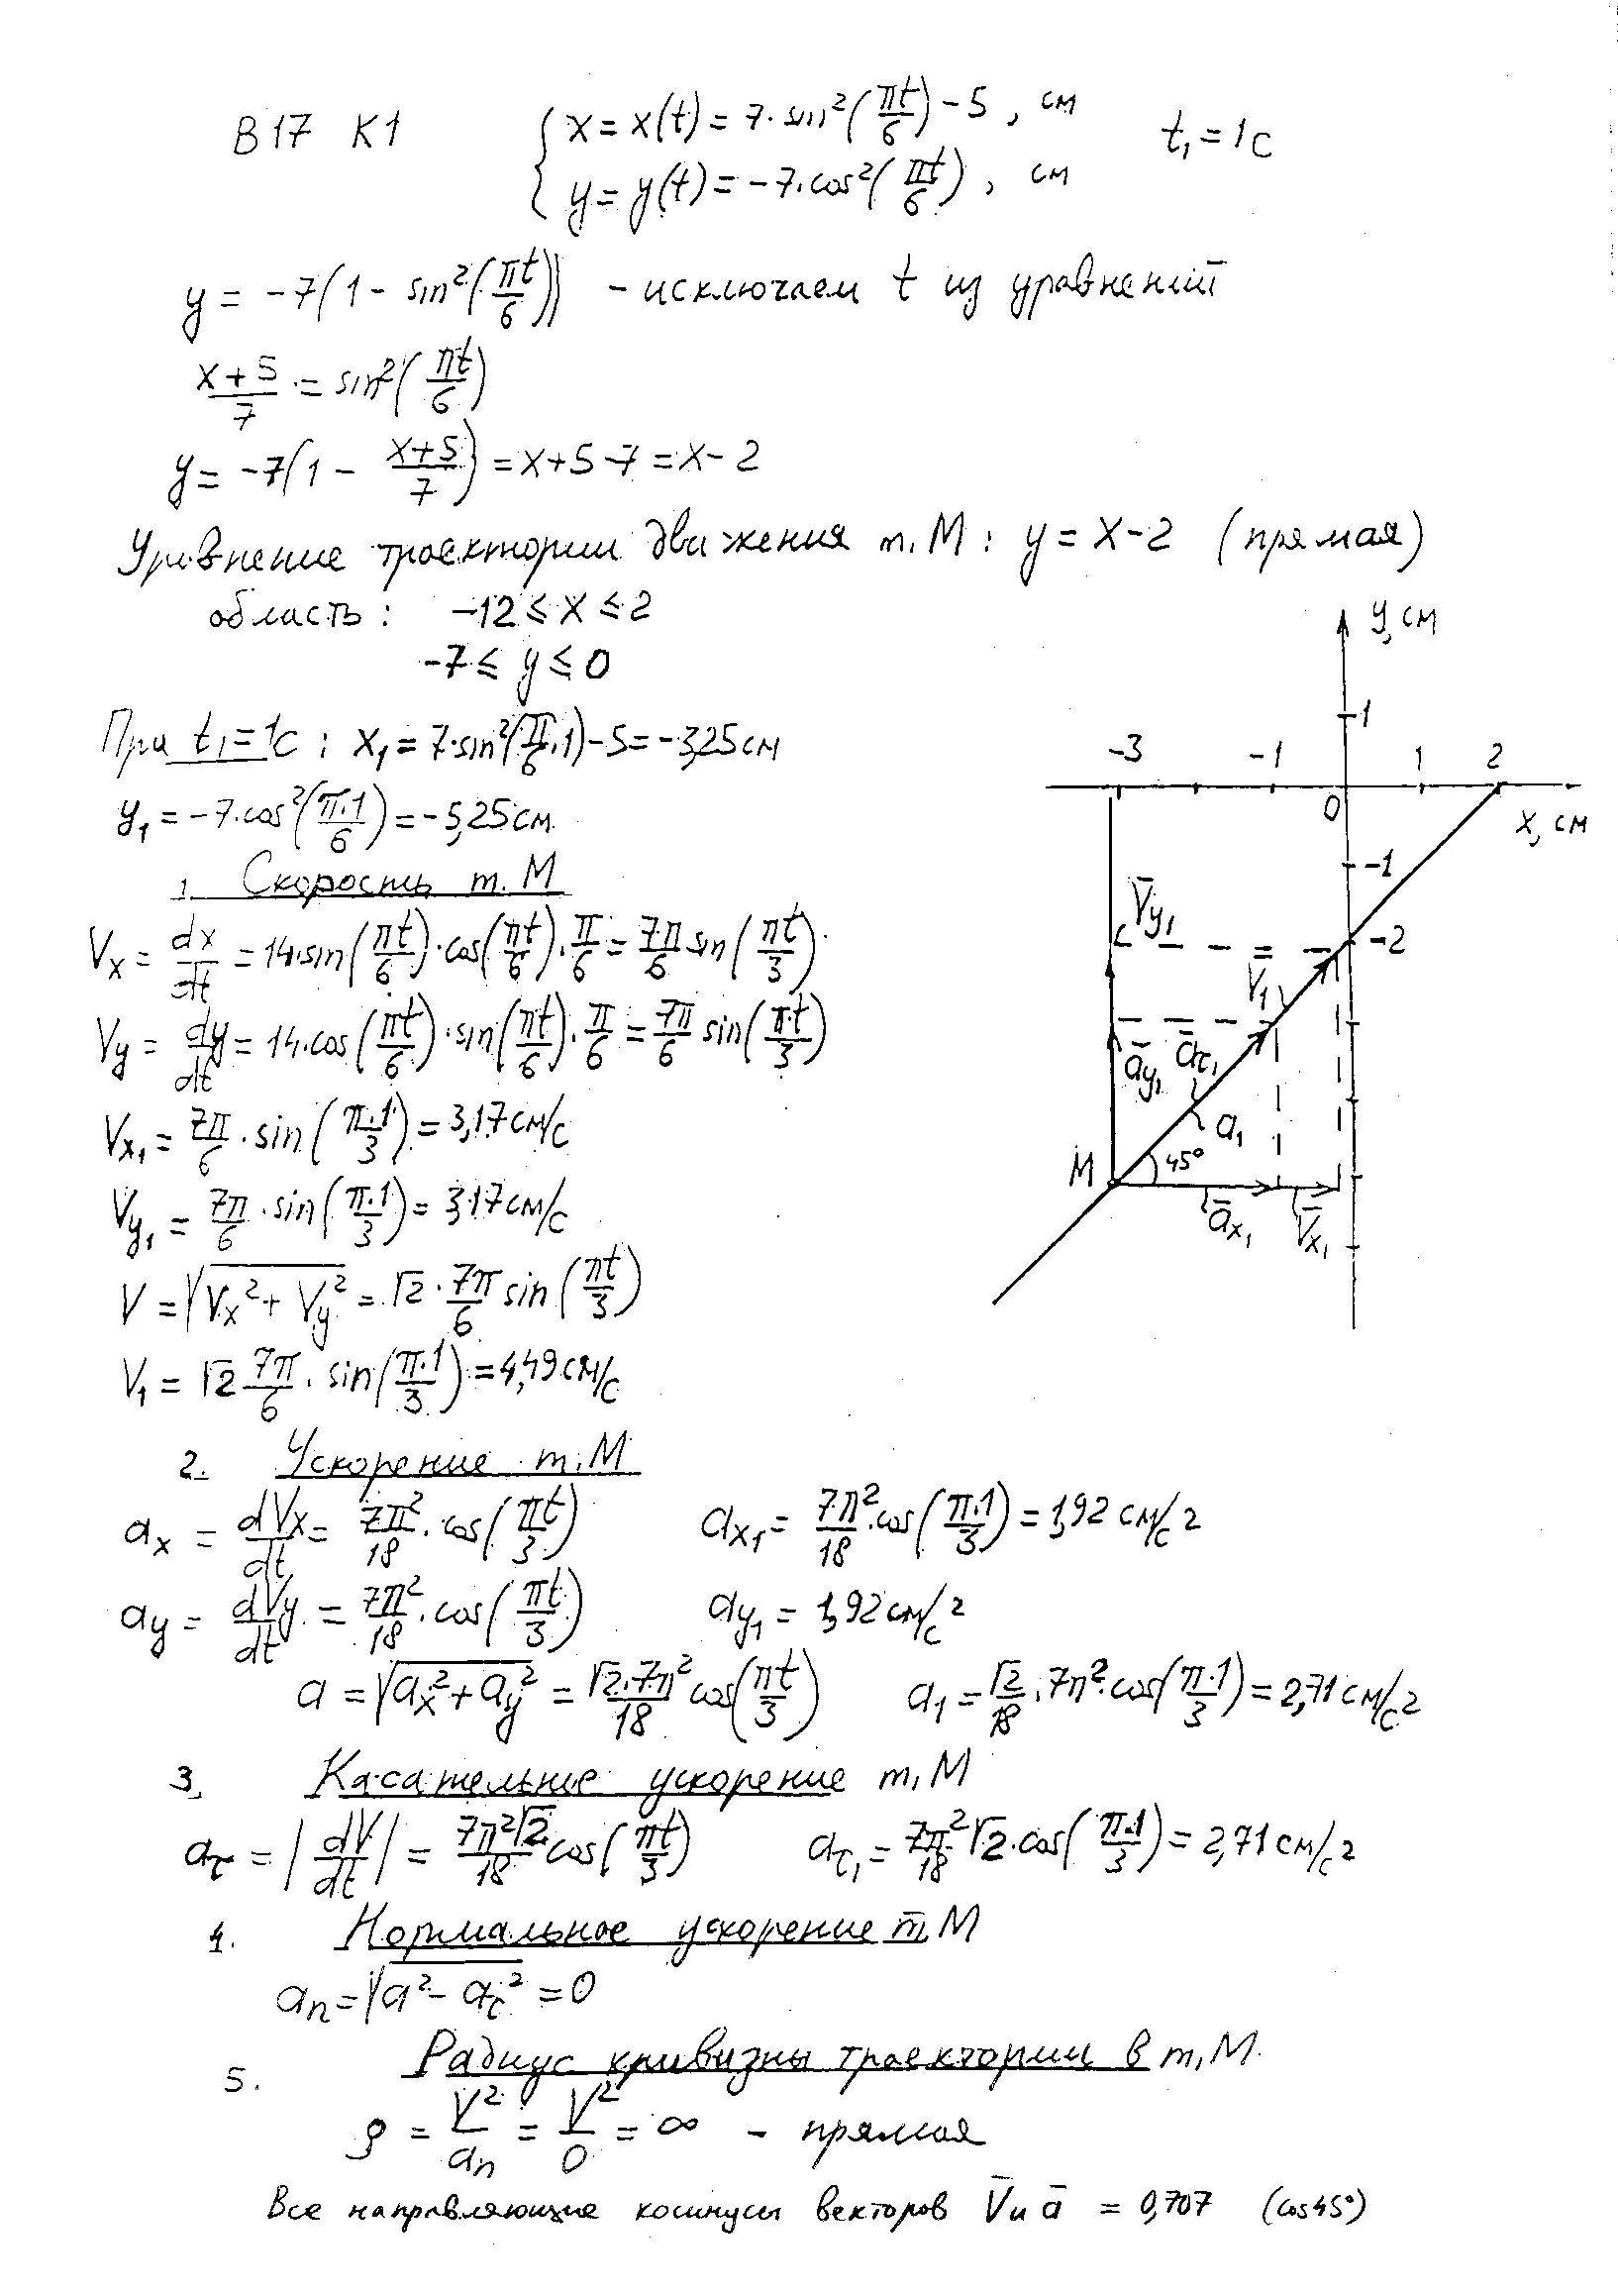 В17 К1 { x = x(t) = 7·sin²(πt/6) - 5, см t₁ = 1с
y = y(t) = -7·cos²(πt/6), см
y = -7(1 - sin²(πt/6)) - исключаем t из уравнений
(x+5)/7 = sin²(πt/6)
y = -7(1 - (x+5)/7) = x+5-7 = x-2
Уравнение траектории движения т.М: y = x-2 (прямая)
область: -12 ≤ x ≤ 2
-7 ≤ y ≤ 0
При t₁=1с: x₁ = 7·sin²(π/6·1)-5 = -3,25см
y₁ = -7·cos²(π·1/6) = -5,25см
1. Скорость т.М
Vx = dx/dt = 14·sin(πt/6)·cos(πt/6)·π/6 = 7π/6 sin(πt/3)
Vy = dy/dt = 14·cos(πt/6)·sin(πt/6)·π/6 = 7π/6 sin(π·t/3)
Vx₁ = 7π/6·sin(π·1/3) = 3,17см/с
Vy₁ = 7π/6·sin(π·1/3) = 3,17см/с
V = √(Vx²+Vy²) = √2·7π/6 sin(πt/3)
V₁ = √2 7π/6·sin(π·1/3) = 4,49см/с
y, см
1
-3 -1 0 1 2
x, см
-1
V̄y₁
-2
V₁
āy₁ āτ₁
a₁
M 45°
āx₁ V̄x₁
2. Ускорение т.М
ax = dVx/dt = 7π²/18·cos(πt/3) ax₁ = 7π²/18·cos(π·1/3) = 1,92 см/с²
ay = dVy/dt = 7π²/18·cos(πt/3) ay₁ = 1,92см/с²
a = √(ax²+ay²) = √2·7π²/18 cos(πt/3) a₁ = √2/18·7π²·cos(π·1/3) = 2,71см/с²
3. Касательние ускорение т.М
aτ = |dV/dt| = 7π²√2/18 cos(πt/3) aτ₁ = 7π²/18 √2·cos(π·1/3) = 2,71см/с²
4. Нормальное ускорение т.М
an = √(a²-aτ²) = 0
5. Радиус кривизны траектории в т.М.
ρ = V²/an = V²/0 = ∞ - прямая
Все направляющие косинусы векторов V̄ и ā = 0,707 (cos45°)